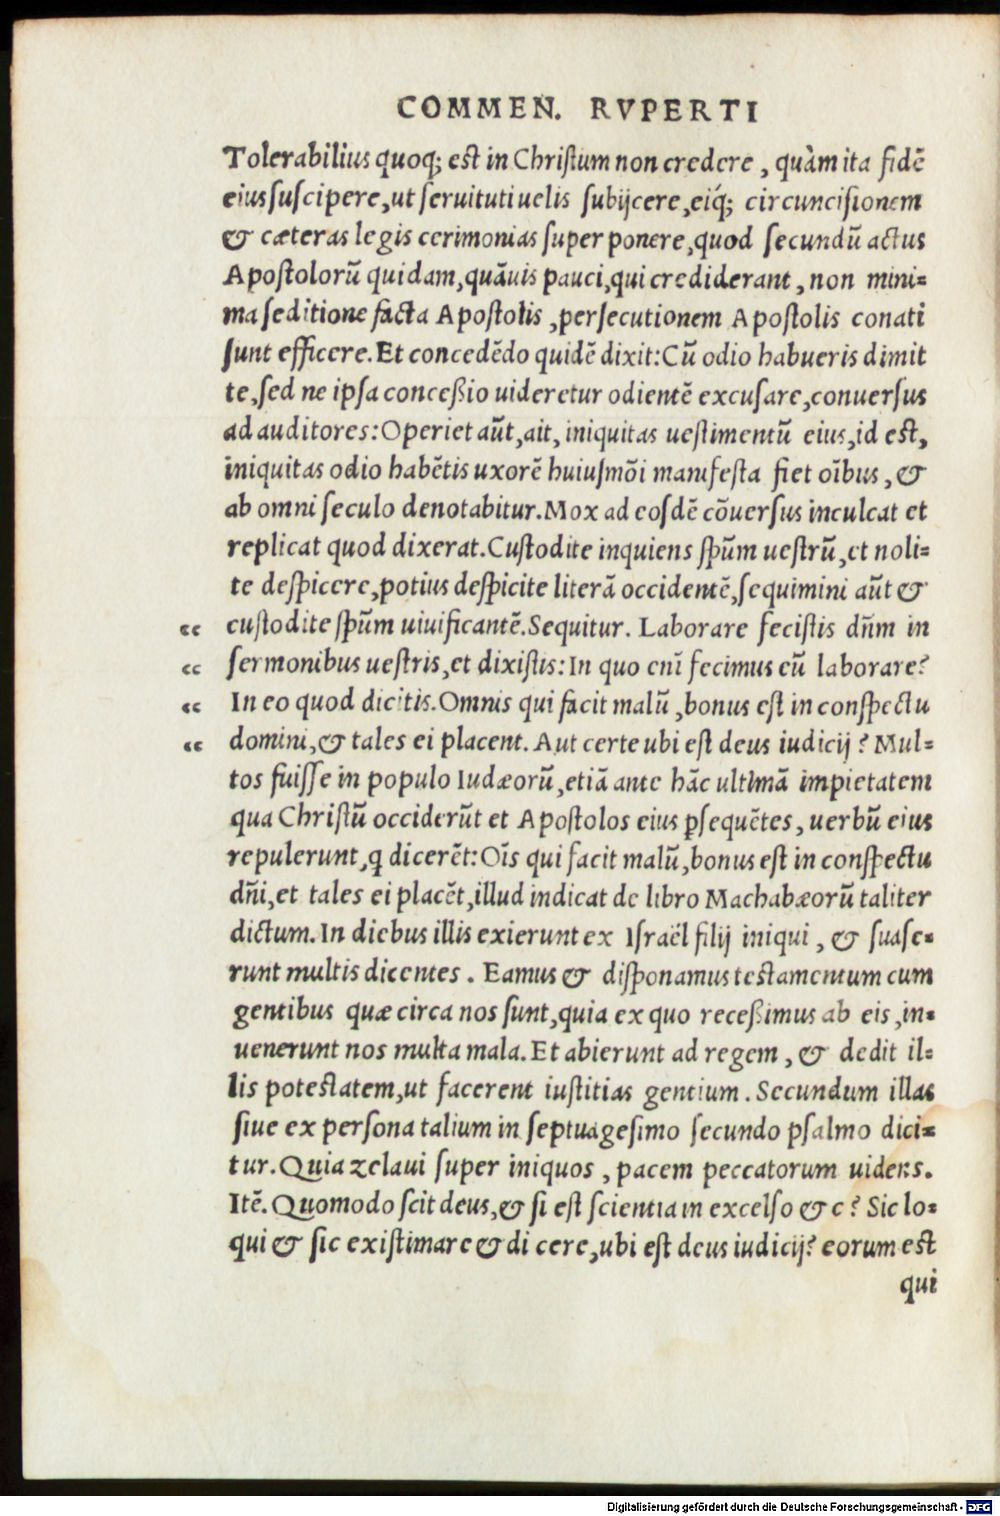 COMMEN. RVPERTI
Tolerabilius quoq; est in Christum non credere, quàm ita fidē
eius suscipere, ut seruituti uelis subijcere, eiq́; circuncisionem
& cæteras legis cerimonias super ponere, quod secundū actus
Apostolorū quidam, quāuis pauci, qui crediderant, non mini=
ma seditione facta Apostolis, persecutionem Apostolis conati
sunt efficere. Et concedēdo quidē dixit: Cū odio habueris dimit
te, sed ne ipsa concessio uideretur odientē excusare, conuersus
ad auditores: Operiet aūt, ait, iniquitas uestimentū eius, id est,
iniquitas odio habētis uxorē huiusmōi manifesta fiet oībus, &
ab omni seculo denotabitur. Mox ad eosdē cōuersus inculcat et
replicat quod dixerat. Custodite inquiens spūm uestrū, et noli=
te despicere, potius despicite literā occidentē, sequimini aūt &
“ custodite spūm uiuificantē. Sequitur. Laborare fecistis dn̄m in
“ sermonibus uestris, et dixistis: In quo enī fecimus eū laborare?
“ In eo quod dicitis. Omnis qui facit malū, bonus est in conspectu
“ domini, & tales ei placent. Aut certe ubi est deus iudicij? Mul=
tos fuisse in populo Iudæorū, etiā ante hāc ultimā impietatem
qua Christū occiderūt et Apostolos eius ꝑsequētes, uerbū eius
repulerunt, ꝗ dicerēt: Oīs qui facit malū, bonus est in conspectu
dn̄i, et tales ei placēt, illud indicat de libro Machabæorū taliter
dictum. In diebus illis exierunt ex Israël filij iniqui, & suase=
runt multis dicentes. Eamus & disponamus testamentum cum
gentibus quæ circa nos sunt, quia ex quo recessimus ab eis, in=
uenerunt nos multa mala. Et abierunt ad regem, & dedit il=
lis potestatem, ut facerent iustitias gentium. Secundum illas
siue ex persona talium in septuagesimo secundo psalmo dici=
tur. Quia zelaui super iniquos, pacem peccatorum uidens.
Itē. Quomodo scit deus, & si est scientia in excelso & c? Sic lo=
qui & sic existimare & di cere, ubi est deus iudicij? eorum est
qui
Digitalisierung gefördert durch die Deutsche Forschungsgemeinschaft - DFG